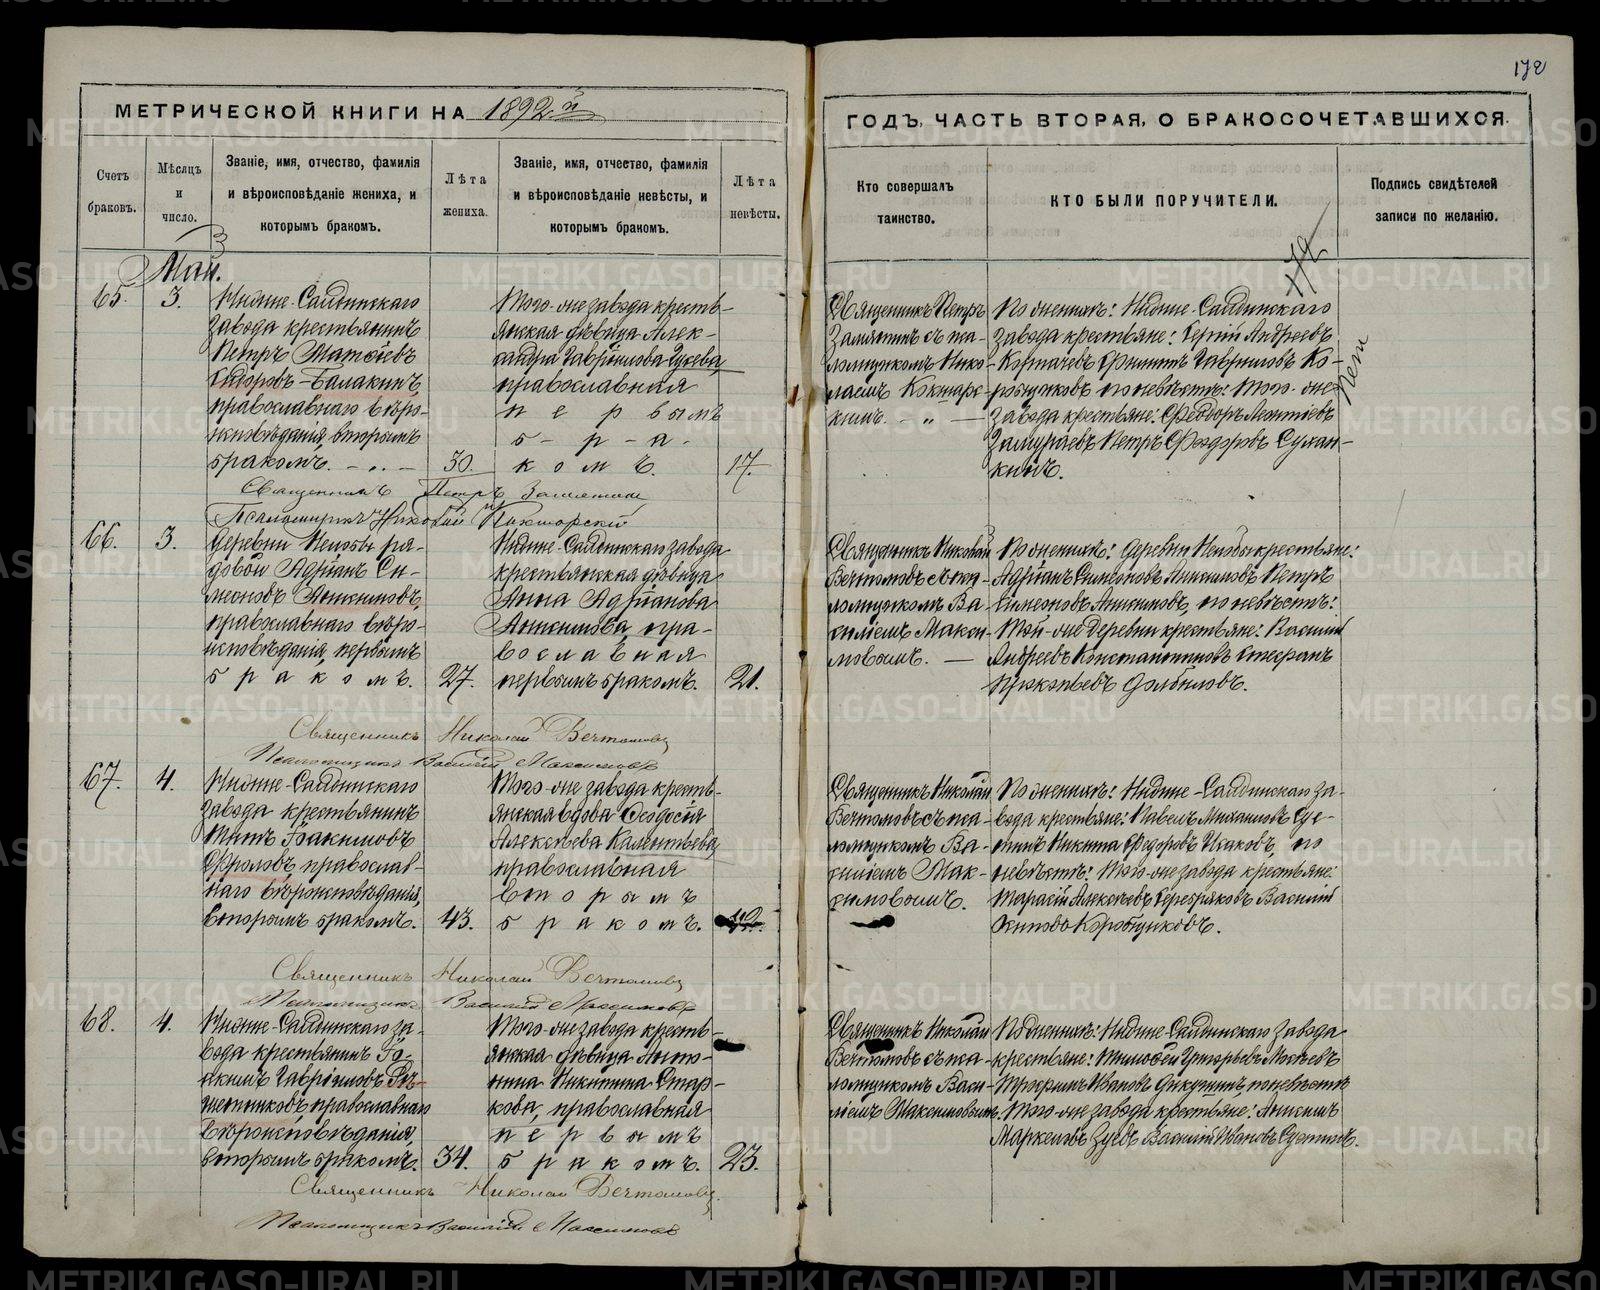 172
МЕТРИЧЕСКОЙ КНИГИ НА 1892й
ГОДЪ, ЧАСТЬ ВТОРАЯ, О БРАКОСОЧЕТАВШИХСЯ.
Счетъ
браковъ.
Мѣсяцъ
и
число.
Званіе, имя, отчество, фамилія
и вѣроисповѣданіе жениха, и
которымъ бракомъ.
Лѣта
жениха.
Званіе, имя, отчество, фамилія
и вѣроисповѣданіе невѣсты, и
которымъ бракомъ.
Лѣта
невѣсты.
Кто совершалъ
таинство.
КТО БЫЛИ ПОРУЧИТЕЛИ.
Подпись свидѣтелей
записи по желанію.
Май.
65.
3.
Нижне-Салдинскаго
завода крестьянинъ
Петръ Матѳіевъ
Сидоровъ-Балакинъ,
православнаго вѣро-
исповѣданія вторымъ
бракомъ.
30.
Того-же завода кресть-
янская дѣвица Алек-
сандра Гавріилова Гусева,
православная
первымъ
б-р-а-
комъ.
17.
Священникъ Петръ
Замятинъ съ пса-
ломщикомъ Нико-
лаемъ
По женихѣ: Нижне-Салдинскаго
завода крестьяне: Сергій Андреевъ
Гавриловъ Ко-
робщиковъ по невѣстѣ: Того-же
завода крестьяне: Ѳеодоръ Леонтіевъ
Замураевъ Петръ Ѳеодоровъ Сухан-
кинъ.
Священникъ Петръ Замятинъ
Псаломщикъ Николай
66.
3.
Деревни ря-
довой Адріанъ Си-
меоновъ Анисимовъ,
православнаго вѣро-
исповѣданія, первымъ
бракомъ.
27.
Нижне-Салдинскаго завода
крестьянская дѣвица
Анна Адріанова
Анисимова, пра-
вославная
первымъ бракомъ.
21.
Священникъ Николай
Вечтомовъ съ пса-
ломщикомъ Ва
силіемъ Макси-
мовымъ.
По женихѣ: Деревни крестьяне:
Адріанъ Симеоновъ Анисимовъ Петръ
Симеоновъ Анисимовъ, по невѣстѣ:
Той-же деревни крестьяне: Василій
Андреевъ Константиновъ Стефанъ
Прокопьевъ
Священникъ Николай Вечтомовъ
Псаломщикъ Василій Максимовъ
67.
4.
Нижне-Салдинскаго
завода крестьянинъ
Титъ Іоакимовъ
Фроловъ, православ-
наго вѣроисповѣданія,
вторымъ бракомъ.
43.
Того-же завода кресть-
янская вдова Ѳеодосія
Алексѣева Калентьева,
православная
вторымъ
бракомъ.
42.
Священникъ Николай
Вечтомовъ съ пса-
ломщикомъ Ва-
силіемъ Мак-
симовымъ.
По женихѣ: Нижне-Салдинскаго за-
вода крестьяне: Павелъ Михаиловъ
Никита Ѳедоровъ Исаковъ, по
невѣстѣ: Того-же завода крестьяне:
Тарасій Алексѣевъ Серебряковъ Василій
Коробщиковъ.
Священникъ Николай Вечтомовъ
Псаломщикъ Василій Максимовъ
68.
4.
Нижне-Салдинскаго за-
вода крестьянинъ Іо-
акимъ Гавріиловъ Рѣ-
шетниковъ, православнаго
вѣроисповѣданія,
вторымъ бракомъ.
34.
Того-же завода кресть-
янская дѣвица Анто-
нина Никитина Стар-
кова, православная
первымъ
бракомъ.
23.
Священникъ Николай
Вечтомовъ съ пса-
ломщикомъ Васи-
ліемъ Максимовымъ.
По женихѣ: Нижне-Салдинскаго завода
крестьяне: Тимоѳей Григорьевъ
Трофимъ Ивановъ по невѣстѣ
Того-же завода крестьяне: Анисимъ
Маркеловъ Зуевъ Василій Ивановъ
Священникъ Николай Вечтомовъ.
Псаломщикъ Василій Максимовъ
METRIKI.GASO-URAL.RU